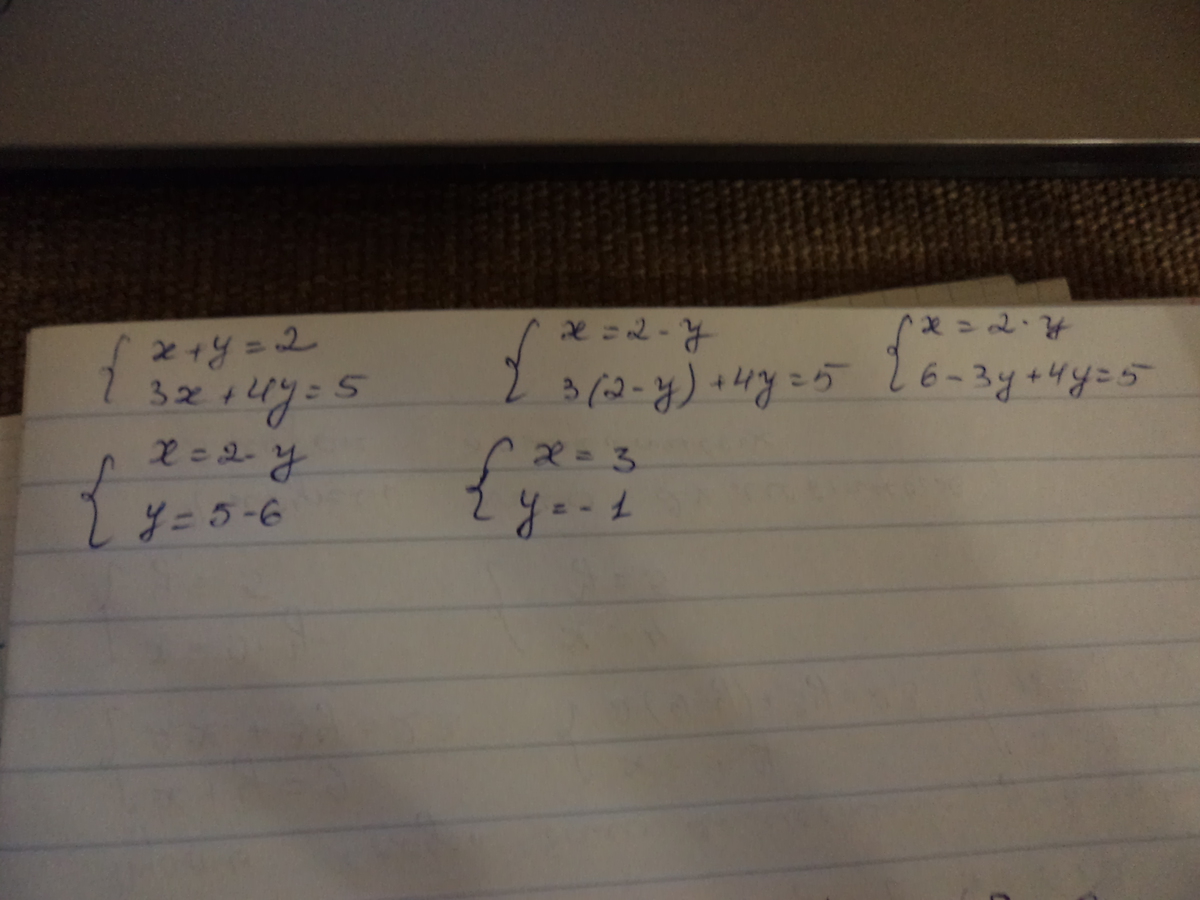 { x + y = 2
3x + 4y = 5
{ x = 2 - y
3(2 - y) + 4y = 5
{ x = 2 - y
6 - 3y + 4y = 5
{ x = 2 - y
y = 5 - 6
{ x = 3
y = - 1